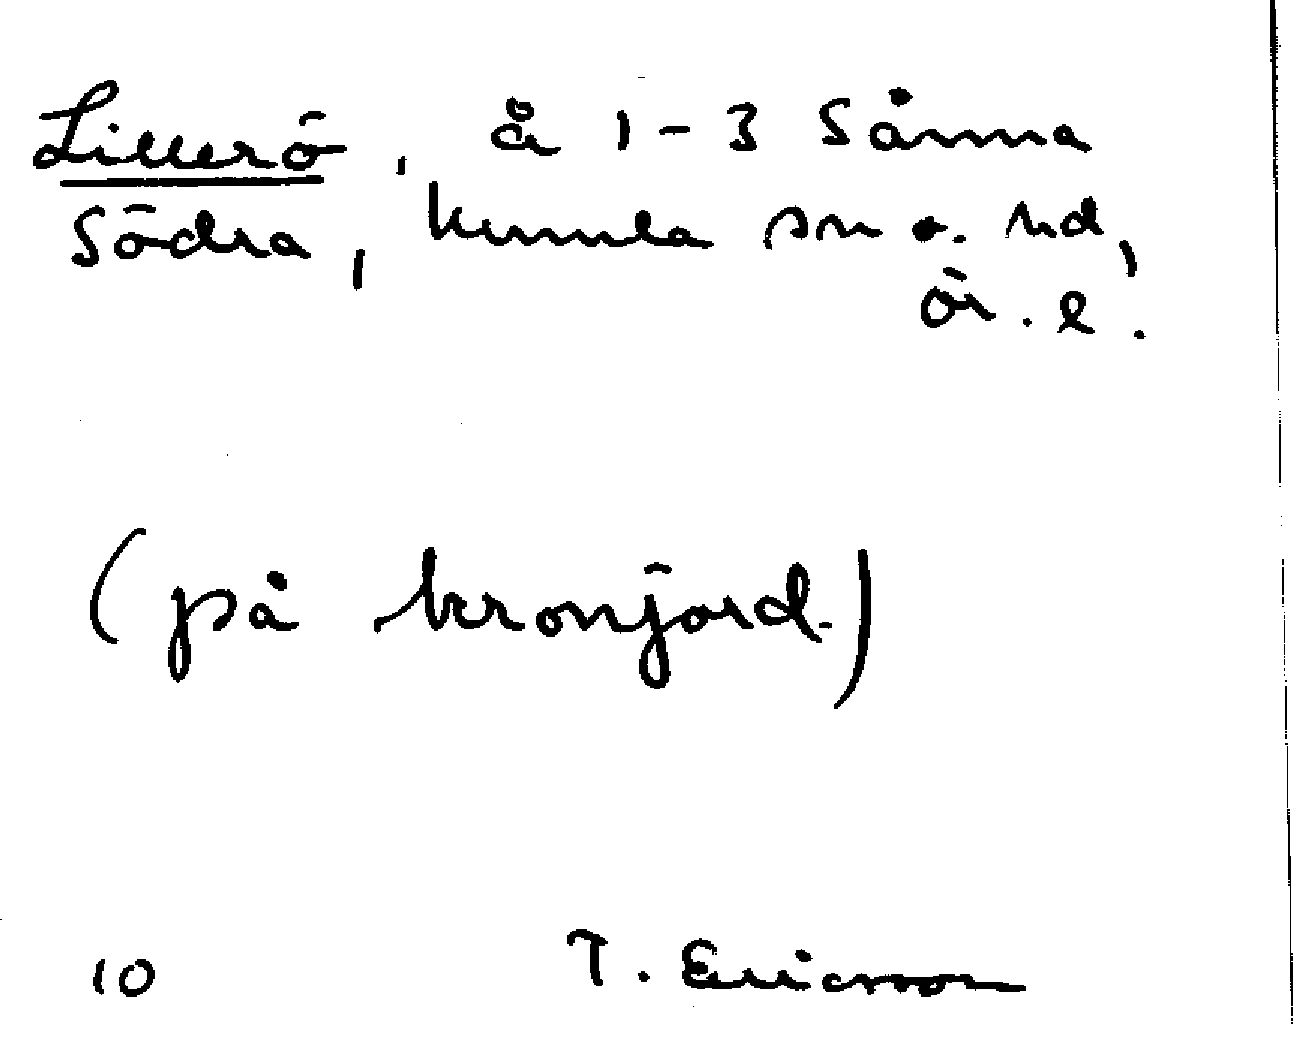 Lillerö, å 1-3 Sånna
Södra, Kumla sn o. hd,
Ör. l.
(på kronjord)
10 T. Ericsson